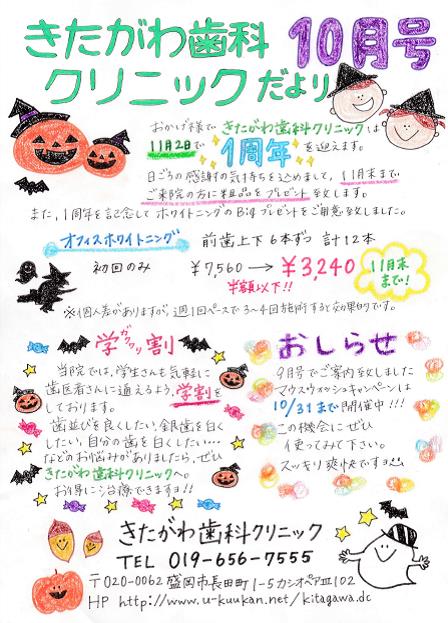 きたがわ歯科 10月号
クリニックだより
おかげ様できたがわ歯科クリニックは
11月2日で1周年を迎えます。
日ごろの感謝の気持ちを込めまして、11月末まで
ご来院の方に粗品をプレゼント致します。
また、1周年を記念してホワイトニングのBigプレゼントをご用意致しました。
オフィスホワイトニング 前歯上下6本ずつ 計12本
初回のみ ¥7,560→¥3,240
半額以下!!
11月末
まで!
※個人差がありますが、週1回ペースで3~4回施術すると効果的です。
学割
ガクワリ
当院では、学生さんも気軽に
歯医者さんに通えるよう、学割を
しております。
歯並びを良くしたい、銀歯を白く
したい、自分の歯を白くしたい…
などのお悩みがありましたら、ぜひ
きたがわ歯科クリニックへ。
お得にご治療できますヨ!!
おしらせ
9月号でご案内致しました
マウスウォッシュキャンペーンは
10/31まで開催中!!!
この機会にぜひ
使ってみて下さい。
スッキリ爽快ですヨ
きたがわ歯科クリニック
TEL 019-656-7555
〒020-0062 盛岡市長田町1-5カシオペアⅢ102
HP http://www.u-kuukan.net/kitagawa.dc